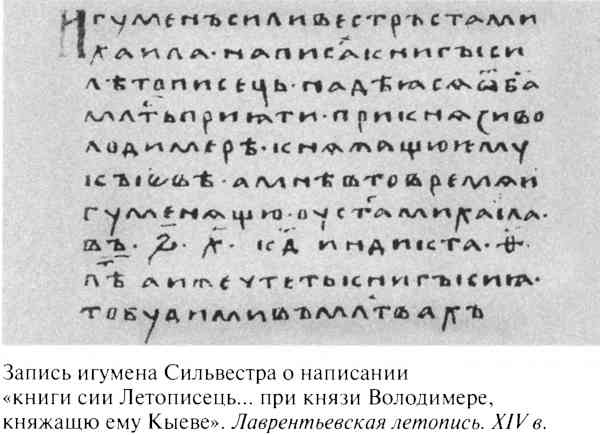 Игуменъсиливестръстаⷢ҇ми
хаила·написаⷯкнигꙑси
лѣтописець·надѣꙗсѧѿба҃
млⷭ҇тьприꙗти·прикнѧꙁиво
лодимерѣ·кнѧжащюѥму
кꙑѥвѣ·амнѣвтовремѧи
гуменѧщю·оустаⷢ҇михаила·
въ·҂ѕ҃·х҃·кд҃ индикта·ѳ҃·
лѣⷮ аижечтетькнигꙑсиꙗ·
тобудимивъмлтⷡ҇ахъ
Запись игумена Сильвестра о написании
«книги сии Летописець... при князи Володимере,
княжащю ему Кыеве». Лаврентьевская летопись. XIV в.